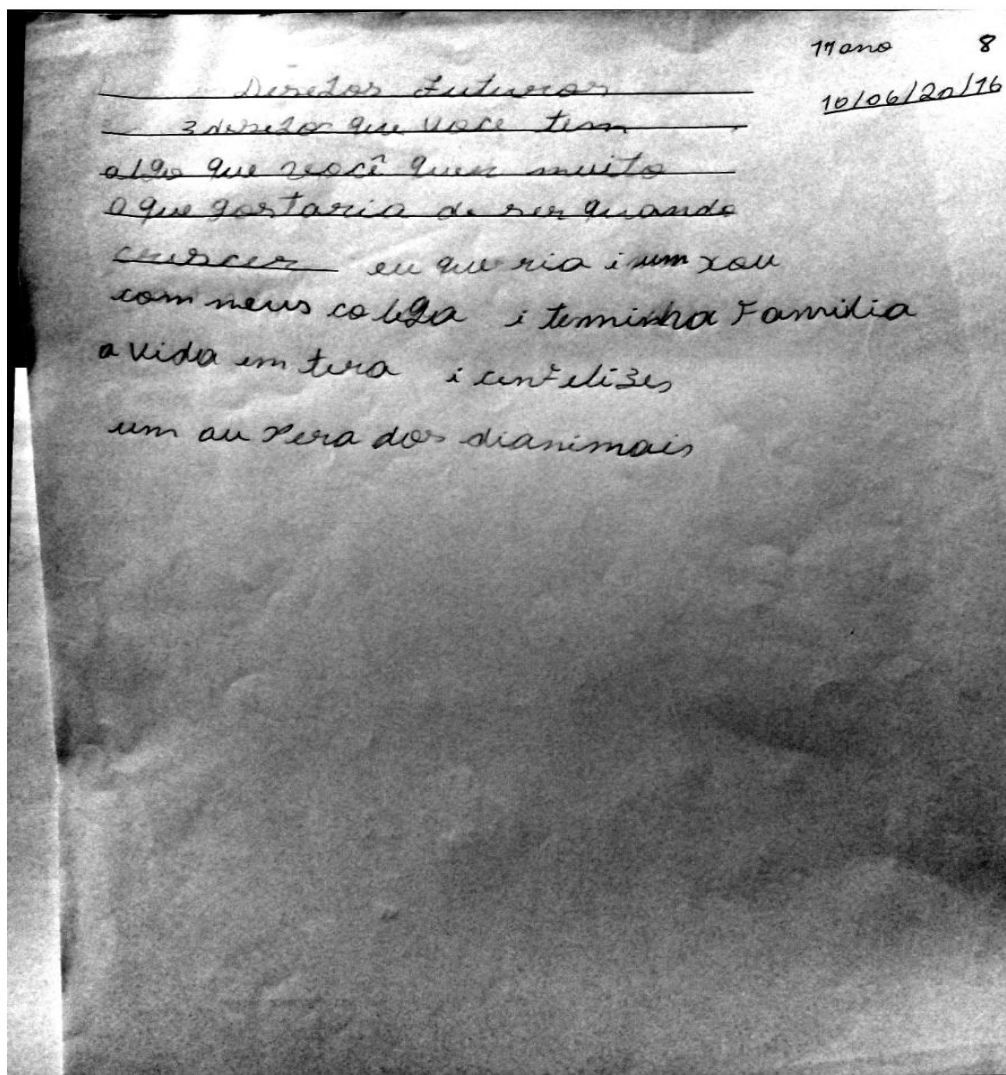 11 ano 8
10/06/20/16
Desejos Futuros
3 desejo que você tem
algo que você quer muito
o que gostaria de ser quando
crescer eu que ria i num xou
com meus colega i terminha Familia
a vida em tera i cer Felizes
um au pera dos dianimais